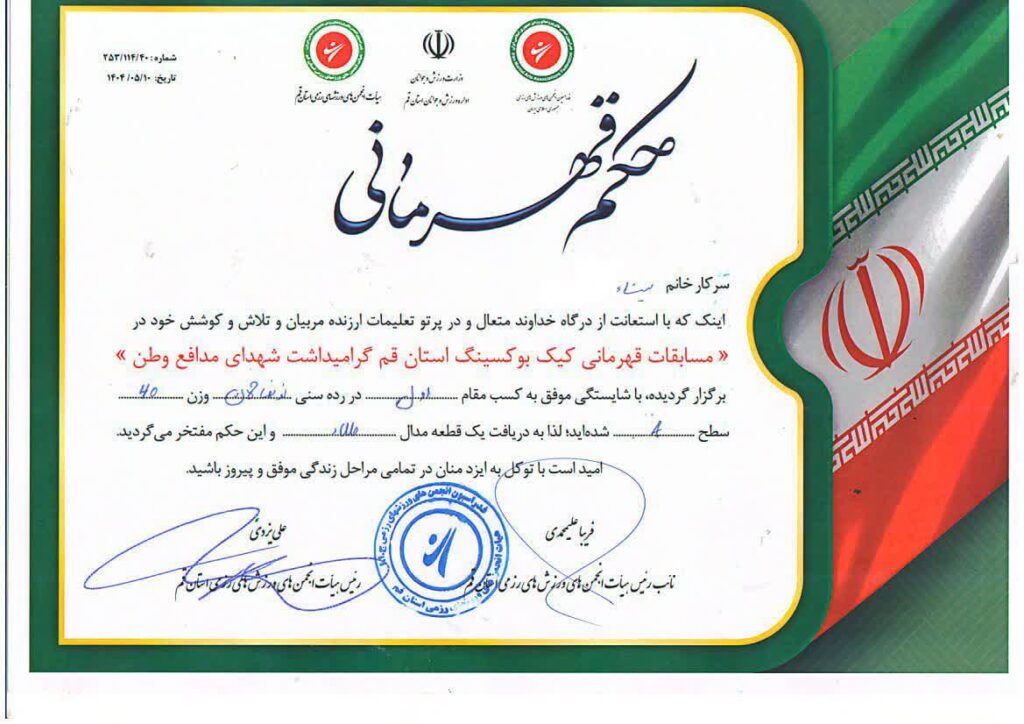 شماره: ۲۵۳/۱۱۴/۴۰
تاریخ: ۱۴۰۴/۰۵/۱۰
فدراسیون انجمن‌های ورزش‌های رزمی
جمهوری اسلامی ایران
وزارت ورزش و جوانان
اداره ورزش و جوانان استان قم
هیأت انجمن‌های ورزشهای رزمی استان قم
حکم قهرمانی
سرکار خانم
اینک که با استعانت از درگاه خداوند متعال و در پرتو تعلیمات ارزنده مربیان و تلاش و کوشش خود در
« مسابقات قهرمانی کیک بوکسینگ استان قم گرامیداشت شهدای مدافع وطن »
برگزار گردیده، با شایستگی موفق به کسب مقام اول در رده سنی وزن ۴۰
سطح شده‌اید؛ لذا به دریافت یک قطعه مدال طلا و این حکم مفتخر می‌گردید.
امید است با توکل به ایزد منان در تمامی مراحل زندگی موفق و پیروز باشید.
فریبا علیمحمدی
نائب رئیس هیأت انجمن های ورزش های رزمی استان قم
علی یزدی
رئیس هیأت انجمن های ورزش های رزمی استان قم
فدراسیون انجمن های ورزشهای رزمی ج.ا.ا
هیات انجمن های ورزشهای رزمی استان قم